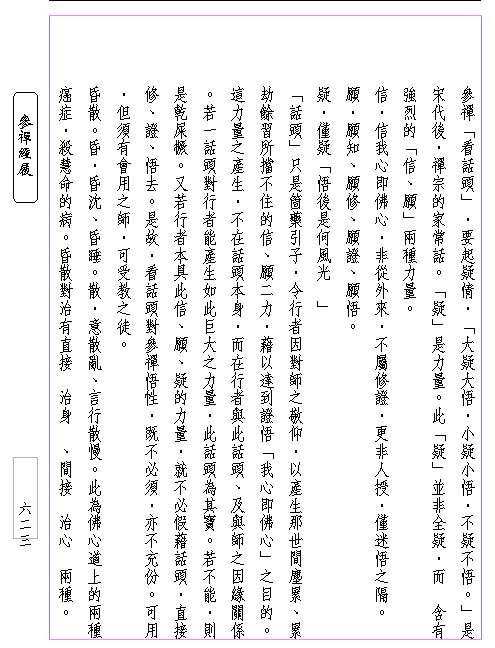 參禪「看話頭」，要起疑情，「大疑大悟，小疑小悟，不疑不悟。」是
宋代後，禪宗的家常話。「疑」是力量。此「疑」並非全疑，而　含有
強烈的「信、願」兩種力量。
信，信我心即佛心，非從外來，不屬修證，更非人授，僅迷悟之隔。
願，願知、願修、願證、願悟。
疑，僅疑「悟後是何風光　」
「話頭」只是個藥引子，令行者因對師之敬仰，以產生那世間塵累、累
劫餘習所擋不住的信、願二力，藉以達到證悟「我心即佛心」之目的。
這力量之產生，不在話頭本身，而在行者與此話頭、及與師之因緣關係
。若一話頭對行者能產生如此巨大之力量，此話頭為其寶。若不能，則
是乾屎橛。又若行者本具此信、願、疑的力量，就不必假藉話頭，直接
修、證、悟去。是故，看話頭對參禪悟性，既不必須，亦不充份。可用
，但須有會用之師，可受教之徒。
昏散。昏，昏沈、昏睡。散，意散亂、言行散慢。此為佛心道上的兩種
癌症，殺慧命的病。昏散對治有直接　治身　、間接　治心　兩種。
參禪經展
六二三